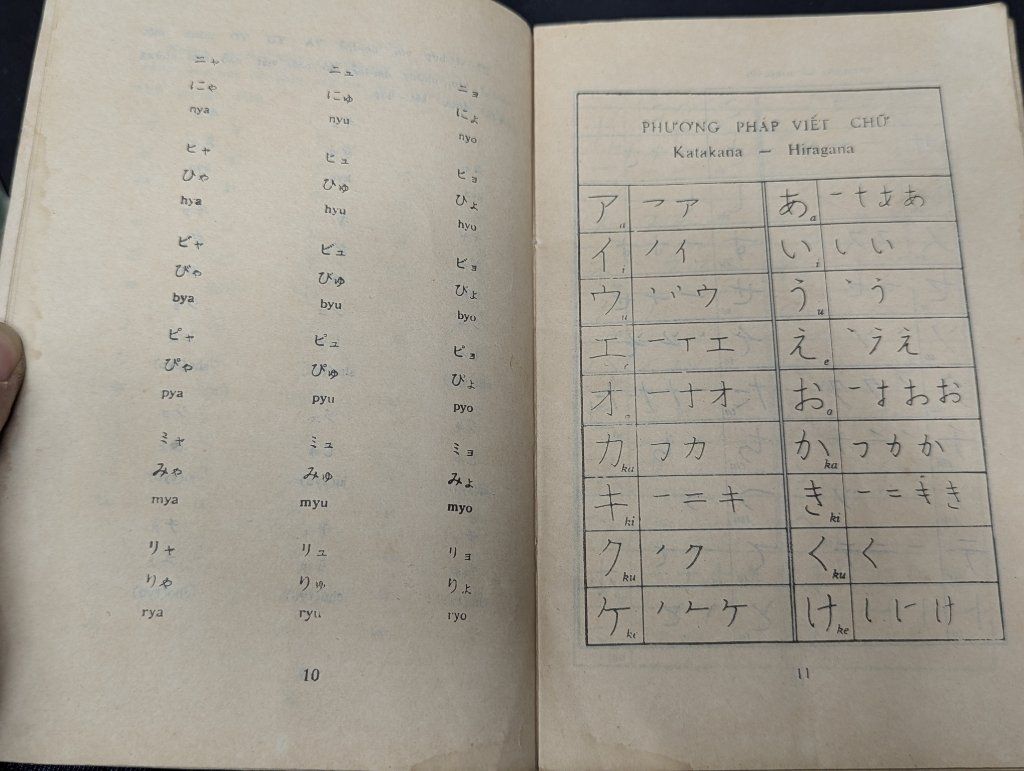 ニャ ニュ ニョ
にゃ にゅ にょ
nya nyu nyo
ヒャ ヒュ ヒョ
ひゃ ひゅ ひょ
hya hyu hyo
ビャ ビュ ビョ
びゃ びゅ びょ
bya byu byo
ピャ ピュ ピョ
ぴゃ ぴゅ ぴょ
pya pyu pyo
ミャ ミュ ミョ
みゃ みゅ みょ
mya myu myo
リャ リュ リョ
りゃ りゅ りょ
rya ryu ryo
10
PHƯƠNG PHÁP VIẾT CHỮ
Katakana — Hiragana
ア a ㇇ ア あ a 一 十 あ あ
イ i ノ イ い i い い
ウ u 丶 丷 ウ う u 丶 う
エ 一 T エ え e 丶 う え
オ 一 ナ オ お o 一 お お お
カ ka フ カ か ka つ カ か
キ ki 一 二 キ き ki 一 二 き き
ク ku ノ ク く ku く
ケ ke ノ ケ ケ け ke し に け
11